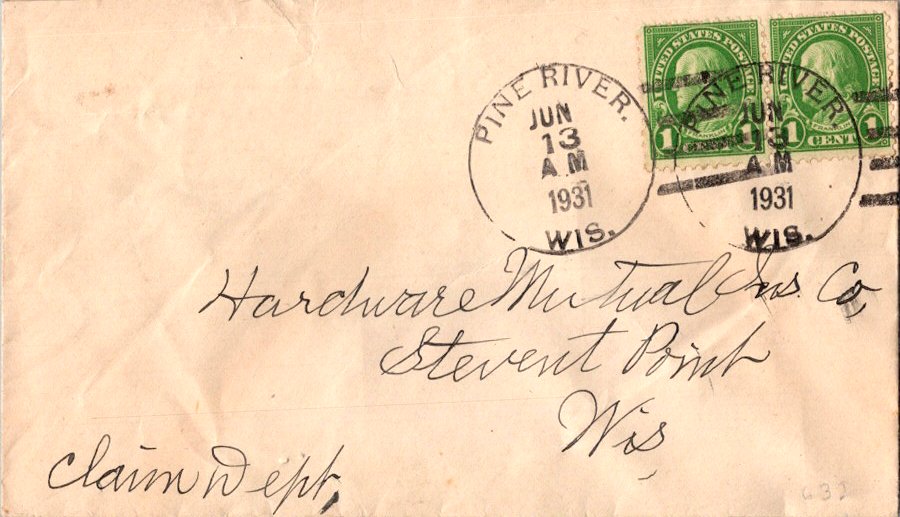 UNITED STATES POSTAGE
1 CENT 1
UNITED STATES POSTAGE
1 CENT 1
PINE RIVER.
JUN
13
A M
1931
WIS.
PINE RIVER.
JUN
13
A.M
1931
WIS.
Hardware Mutual Ins. Co
Stevent Point
Wis
Claim Dept,